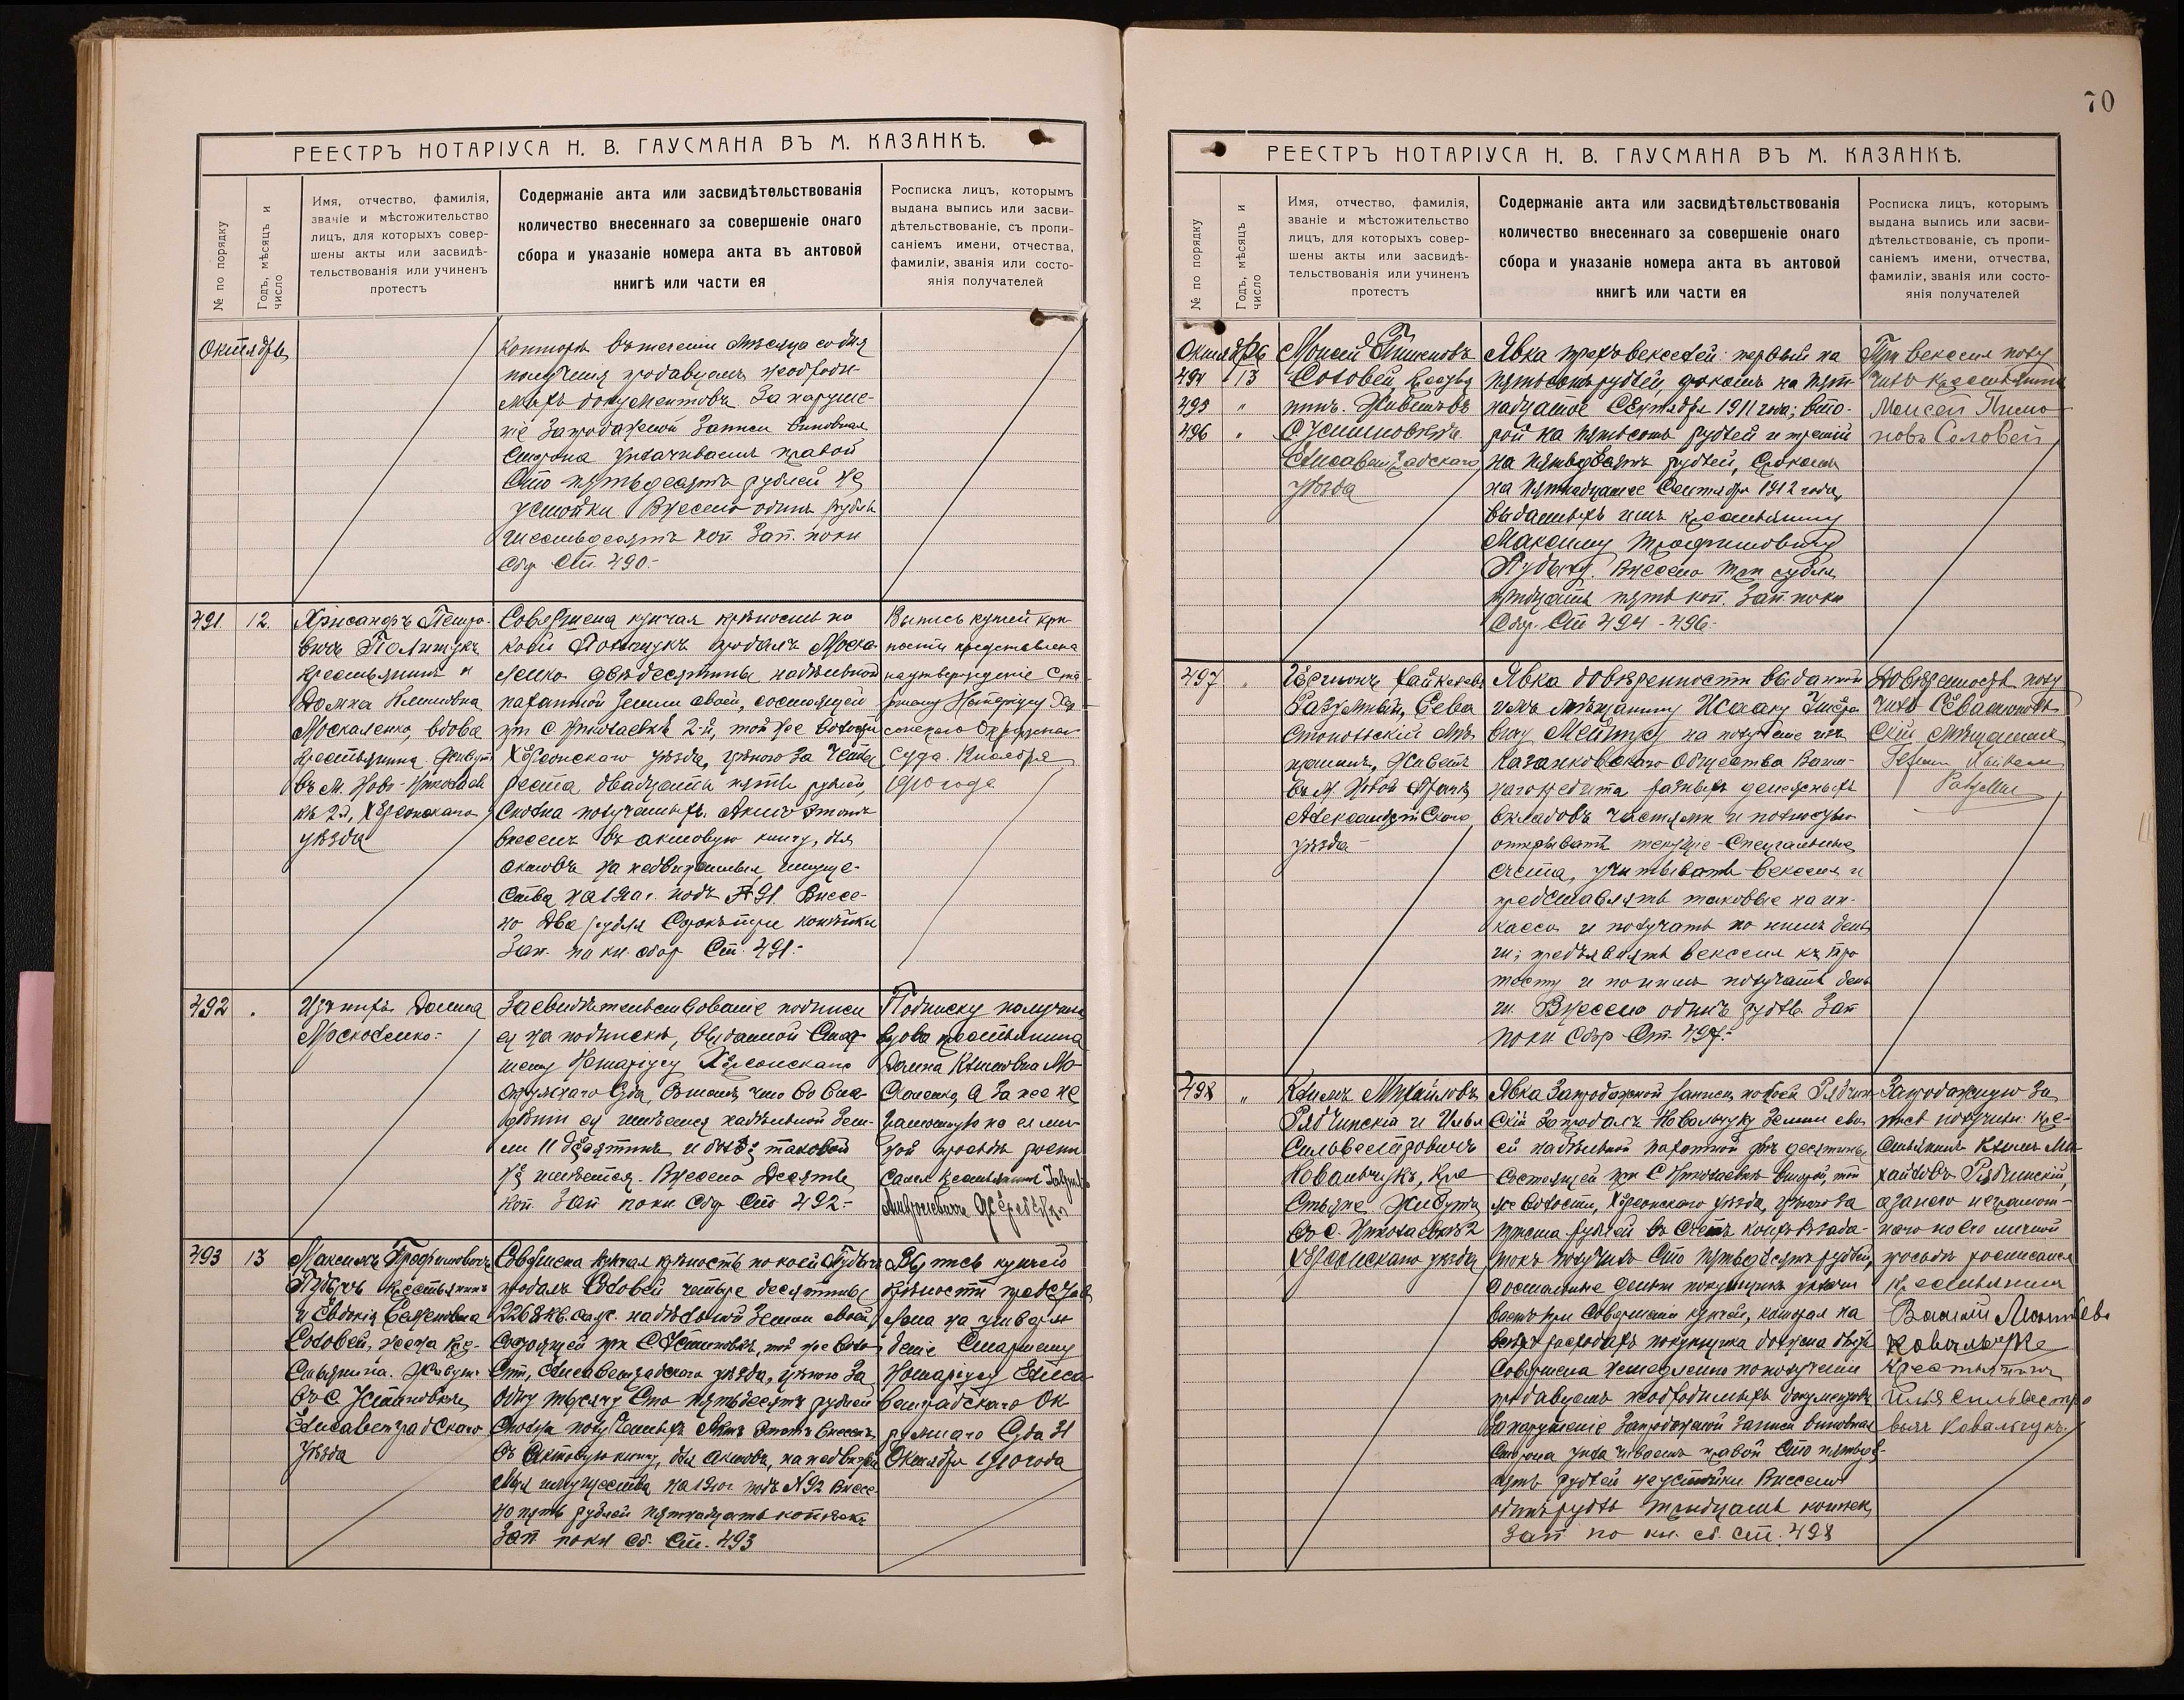 РЕЕСТРЪ НОТАРІУСА Н. В. ГАУСМАНА ВЪ М. КАЗАНКѢ.
№ по порядку
Годъ, мѣсяцъ и
число
Имя, отчество, фамилія,
званіе и мѣстожительство
лицъ, для которыхъ совер-
шены акты или засвидѣ-
тельствованія или учиненъ
протестъ
Содержаніе акта или засвидѣтельствованія
количество внесеннаго за совершеніе онаго
сбора и указаніе номера акта въ актовой
книгѣ или части ея
Росписка лицъ, которымъ
выдана выпись или засви-
дѣтельствованіе, съ пропи-
саніемъ имени, отчества,
фамиліи, званія или состо-
янія получателей
Октябрь
въ теченіи мѣсяца со дня
полученія продавцомъ необходи-
мыхъ документовъ За наруше-
ніе Запродажной Записи виновная
Сторона уплачиваетъ правой
Сто пятьдесятъ рублей не
устойки. Внесено одинъ рубль
шестьдесятъ коп. Зап. по кн
Сбр Ст. 490.-
491. 12.
Хрисанфъ Петро-
вичъ Полищукъ
крестьянинъ и
Домна Климовна
Москаленко, вдова
крестьянина. Живутъ
въ М. Ново-Николаев
кѣ 2й, Херсонскаго
уѣзда
Совершена купчая крѣпость по
коей Полищукъ продалъ Моска-
ленко двѣ десятины надѣльной
пахатной земли своей, состоящей
при с Николаевкѣ 2-й, той же волости
Херсонскаго уѣзда, цѣною за четы
реста двадцать пять рублей,
Сполна полученныхъ. Актъ этотъ
внесенъ въ актовую книгу, для
актовъ на недвижимыя имуще-
ства на 1910 г. подъ № 91. Внесе-
но два рубля Сорокъ три копѣйки
Зап. по кн. сбор Ст. 491.-
Выпись купчей крѣ-
пости представлена
на утвержденіе Ста-
ршему Нотаріусу Хер-
сонскаго Окружнаго
Суда.
1910 года
492 .
Изъ нихъ Домна
Москаленко.-
Засвидѣтельствованіе подписи
ея на подпискѣ, выданной Стар-
шему Нотаріусу Херсонскаго
Окружнаго Суда, въ томъ, что во вла-
дѣніи ея имѣется надѣльной Зем-
ли 11 десятинъ и болѣе таковой
не имѣется. Внесено Десять
коп. Зап по кн. Сбр Ст 492.-
Подписку получила
вдова крестьянина
Домна Климовна Мо-
скаленко, а за нее не
грамотную по ея лич
ной просьбѣ роспи
сался крестьянинъ
493 13
Максимъ Трофимовичъ
крестьянинъ
и Евдокія Семеновна
Соловей, жена кре-
стьянина. Живутъ
въ с Устиновкѣ,
Елисаветградскаго
уѣзда
Совершена купчая крѣпость по коей
продалъ Соловей четыре десятины
2268 кв. саж. надѣльной Земли своей,
Состоящей при с Устиновкѣ, той же воло
сти, Елисаветградскаго уѣзда, цѣною за
одну тысячу Сто пятьдесятъ рублей
Сполна полученныхъ Актъ этотъ внесенъ
въ Актовую книгу, для актовъ, на недвижи
мыя имущества на 1910 г. подъ № 92 Внесе-
но пять рублей пятнадцать копѣекъ
Зап по кн сб. Ст. 493
Выпись купчей
крѣпости представ
лена на утверж
деніе Старшему
Нотаріусу Елиса
ветградскаго Ок
ружнаго Суда 31
Октября 1910 года
70
РЕЕСТРЪ НОТАРІУСА Н. В. ГАУСМАНА ВЪ М. КАЗАНКѢ.
№ по порядку
Годъ, мѣсяцъ и
число
Имя, отчество, фамилія,
званіе и мѣстожительство
лицъ, для которыхъ совер-
шены акты или засвидѣ-
тельствованія или учиненъ
протестъ
Содержаніе акта или засвидѣтельствованія
количество внесеннаго за совершеніе онаго
сбора и указаніе номера акта въ актовой
книгѣ или части ея
Росписка лицъ, которымъ
выдана выпись или засви-
дѣтельствованіе, съ пропи-
саніемъ имени, отчества,
фамиліи, званія или состо-
янія получателей
Октября
494 13
495 "
496 "
Моисей Пименовъ
Соловей, крестья
нинъ. Живетъ въ
с Устиновкѣ.
Елисаветградскаго
уѣзда
Явка трехъ векселей: первый на
пятьсотъ рублей, срокомъ на пят-
надцатое Сентября 1911 года; вто-
рой на пятьсотъ рублей и третій
на пятьдесятъ рублей, срокомъ
на пятнадцатое Сентября 1912 года,
выданныхъ имъ крестьянину
Максиму Трофимовичу
Внесено три рубля
тридцать пять коп. Зап по кн
Сбор. Ст 494-496.-
Три векселя полу
чилъ крестьянинъ
Моисей Пиме
новъ Соловей
497 "
Разумный, Сева
стопольскій мѣ
щанинъ, Живетъ
въ М. Новой Прагѣ
Александрійскаго
уѣзда
Явка довѣренности выданной
имъ мѣщанину Исааку
на полученіе изъ
Казанковскаго Общества Взаим-
наго кредита разныхъ денежныхъ
вкладовъ частями и полностью
открывать текущіе-спеціальные
счета, учитывать векселя и
представлять таковые на ин-
кассо и получать по нимъ день
ги; предъявлять векселя къ про
тесту и по нимъ получать день
ги. Внесено одинъ рубль. Зап
по кн Сбор Ст. 497.-
Довѣренность полу
чилъ Севастополь
скій мѣщанинъ
498 "
Климъ Михайловъ
Рябчинскій и Илья
Сильвестровичъ
Ковальчукъ, кре
стьяне Живутъ
въ с. Николаевкѣ 2
Херсонскаго уѣзда
Явка Запродажной записи по коей Рябчин
скій запродалъ Ковальчуку Земли сво
ей надѣльной пахатной двѣ десятины
Состоящей при с Николаевкѣ второй, той
же волости, Херсонскаго уѣзда, цѣною за
триста рублей въ счетъ коихъ въ зада-
токъ получилъ Сто пятьдесятъ рублей,
а остальные деньги покупщикъ уплачи
ваетъ при совершеніи купчей, которая на
счетъ расходахъ покупщика должна быть
Совершена немедленно по полученіи
продавцомъ необходимыхъ документовъ
За нарушеніе Запродажной Записи виновная
Сторона уплачиваетъ правой Сто пятьде-
сятъ рублей неустойки. Внесено
одинъ рубль тридцать копѣек,
Зап по кн. сб. ст. 498
Запродажную за
пись получили кре
стьянинъ Климъ Ми
хайловъ Рябчинскій,
а за него неграмот-
наго по его личной
просьбѣ росписался
крестьянинъ
крестьянинъ
Илья Сильвестро
вичъ Ковальчукъ.